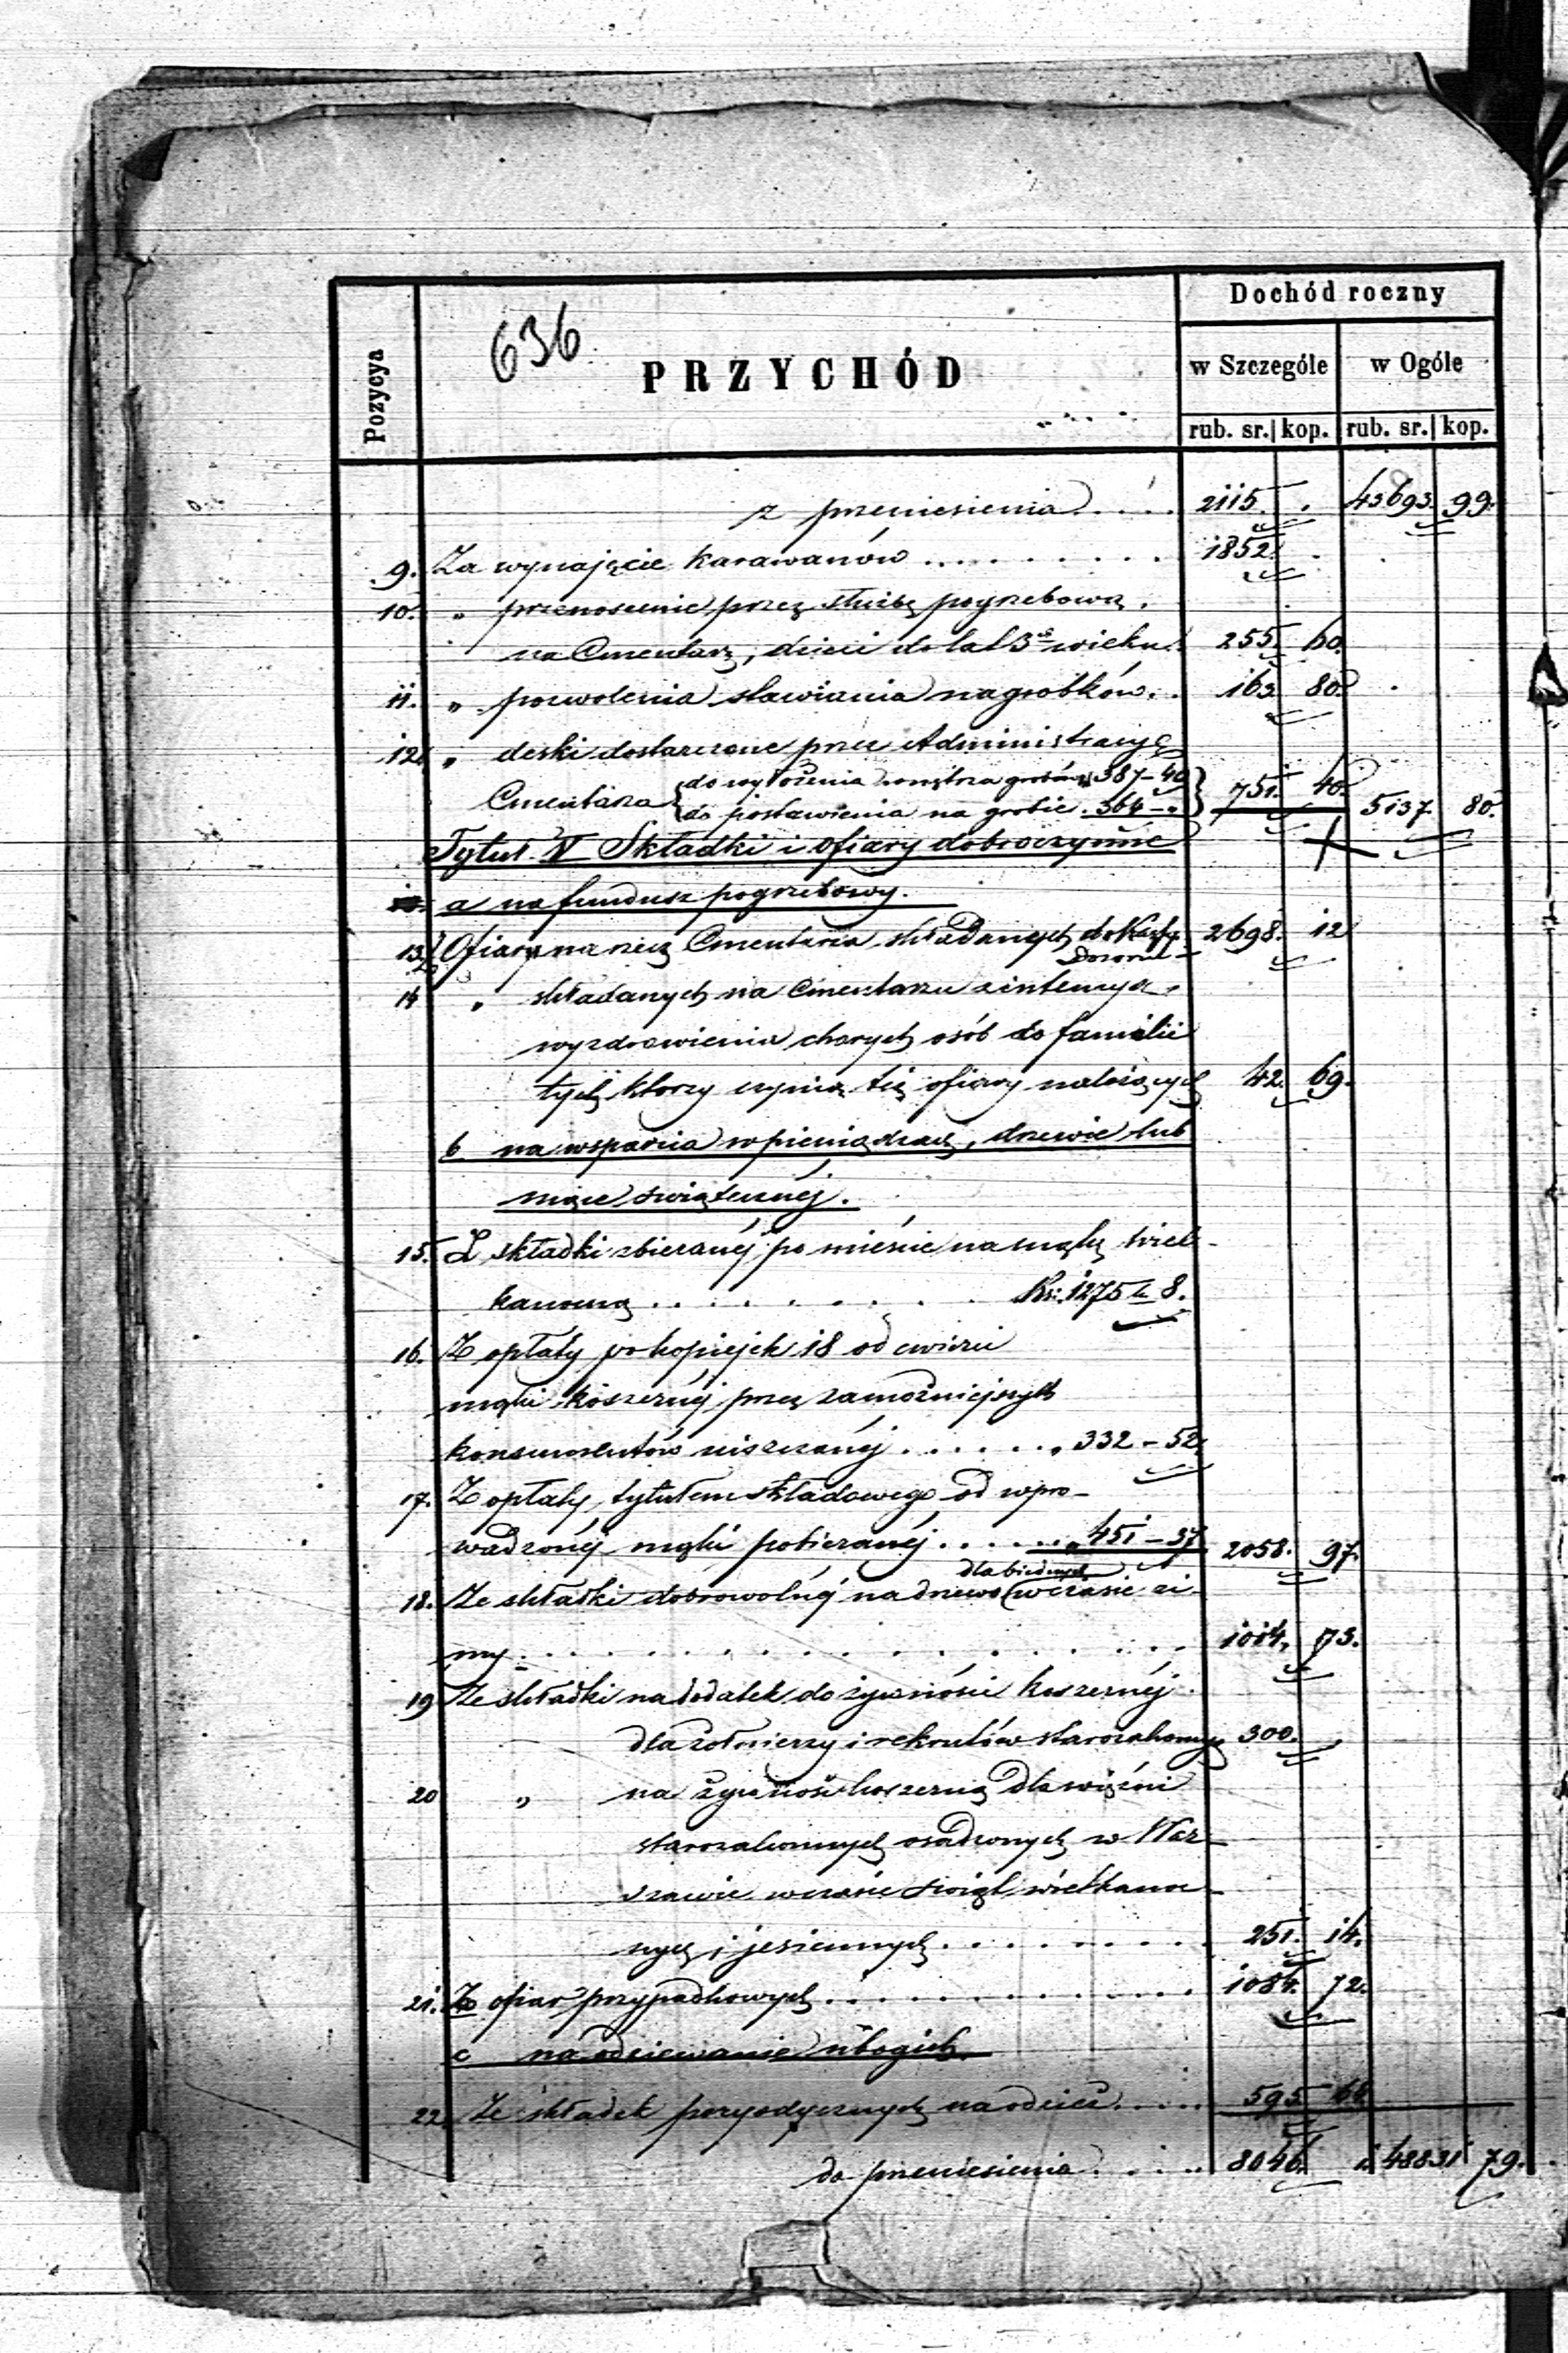 636
Pozycya
PRZYCHÓD
Dochód roczny
w Szczególe w Ogóle
rub. sr. kop. rub. sr. kop.
z przeniesienia . . . . 2115. . 43693. 99.
9. Za wynajęcie karawanów . . . . . . . . . 1852. .
10. „ przenoszenie przez służbę pogrzebową
na Cmentarz, dzieci do lat 3ch wieku. 255. 60.
11. „ pozwolenia stawiania nagrobków. . 163. 80.
12. „ deski dostarczone przez Administracyę
Cmentarza {do wyłożenia wnętrza grobów „ 387–40
{do postawienia na grobie . 364–„ } 751. 40. 5137. 80.
Tytuł V Składki i ofiary dobroczynne
a na fundusz pogrzebowy.
13. Ofiary na rzecz Cmentarza składanych do Kassy 2698. 12
Dozoru
14 „ składanych na Cmentarzu z intencyą
wyzdrowienia chorych osób do familii
tych którzy czynią tię ofiary należących 42. 69.
b na wsparcia w pieniądzach, drzewie lub
mące świątecznéj.
15. Z składki zbieranéj po mieście na mąkę wiel-
kanocną . . . . . . . . . Rs. 1275 k 8.
16. Z opłaty po kopiejek 18 od ćwierci
mąki koszernéj przez zamożniejszych
konsumentów uiszczanéj . . . . . . „ 332 – 52
17. Z opłaty, tytułem składowego od wpro-
wadzonéj mąki pobieranéj . . . . . . „ 451 – 37 2058. 97.
dla biednych
18. Ze składki dobrowolnéj na drzewo w czasie zi-
my . . . . . . . . . . . . . . . 1014. 73.
19 Ze składki na dodatek do żywności koszernéj
dla żołnierzy i rekrutów starozakonnych 300. .
20 „ na żywność koszerną dla więźni
starozakonnych osadzonych w War-
szawie w czasie świąt wielkanoc-
nych i jesiennych . . . . . . . . . 251. 14.
21. Z ofiar przypadkowych . . . . . . . . . . . . 1084. 72.
c na odziewanie ubogich.
22 Ze składek peryodycznych na odzież . . . . 595
do przeniesienia . . . . 8046. 48831 79.